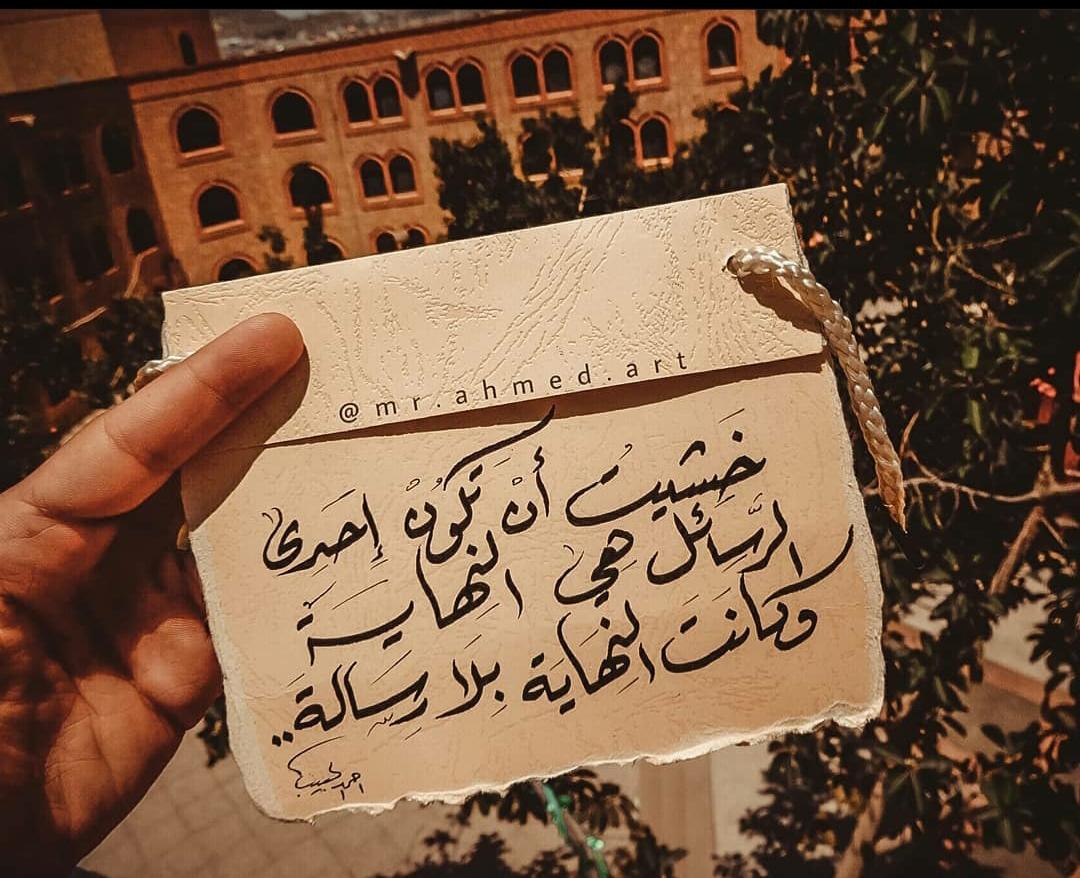 @mr.ahmed.art
خشيت أنْ تكُونْ إحَدى
الرَّسائل هي النهاية
وكانَت النهَاية بلَا رِسَالة..